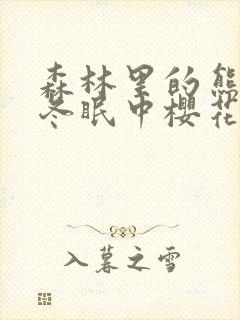 森林里的熊
冬眠中樱花
入暮之雪